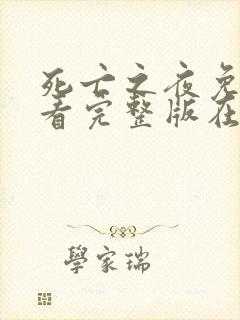 死亡之夜免
看完整版在
學家瑞